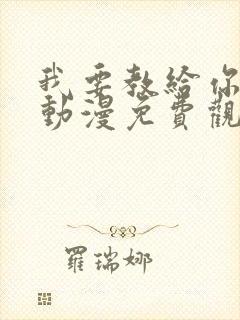 我要教給你
動漫免費觀
羅瑞娜